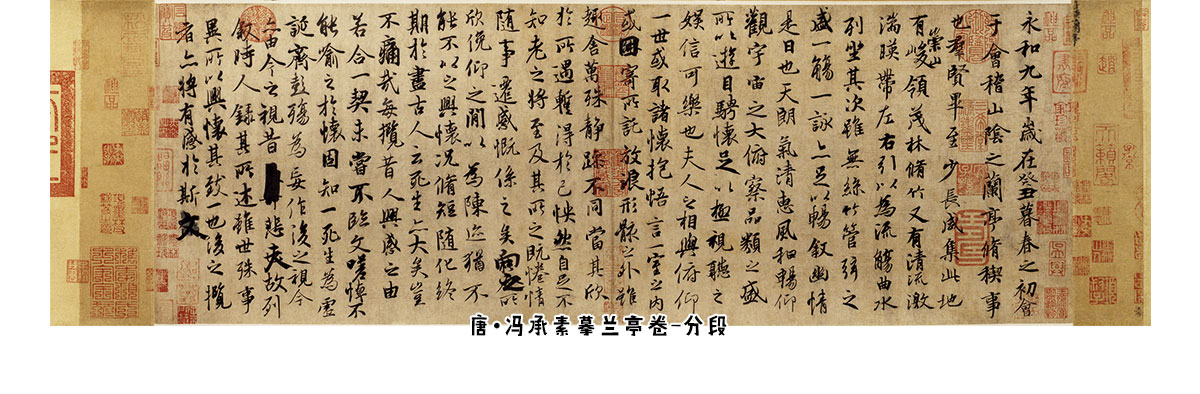 永和九年歲在癸丑暮春之初會
于會稽山陰之蘭亭脩稧事
也群賢畢至少長咸集此地
有崇山峻領茂林脩竹又有清流激
湍暎帶左右引以為流觴曲水
列坐其次雖無絲竹管弦之
盛一觴一詠亦足以暢敘幽情
是日也天朗氣清惠風和暢仰
觀宇宙之大俯察品類之盛
所以遊目騁懷足以極視聽之
娛信可樂也夫人之相與俯仰
一世或取諸懷抱悟言一室之內
或因寄所託放浪形骸之外雖
趣舍萬殊靜躁不同當其欣
於所遇蹔得於己怏然自足不
知老之將至及其所之既惓情
隨事遷感慨係之矣向之所
欣俛仰之閒以為陳迹猶不
能不以之興懷況脩短隨化終
期於盡古人云死生亦大矣豈
不痛哉每攬昔人興感之由
若合一契未嘗不臨文嗟悼不
能喻之於懷固知一死生為虛
誕齊彭殤為妄作後之視今
亦由今之視昔悲夫故列
敘時人錄其所述雖世殊事
異所以興懷其致一也後之攬
者亦將有感於斯文
唐·冯承素摹兰亭卷-分段